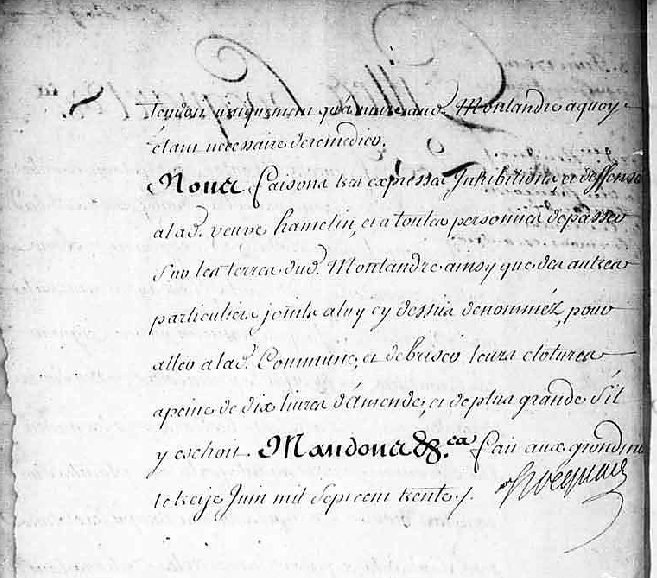 tendent uniquement qu'a nuire aud. Montandre a quoy
étant necessaire de remedier.
Nous faisons tres expresses Inhibitions et deffenses
a lad. veuve hamelin, et a toutes personnes de passer
sur les terres dud. Montandre ainsy que des autres
particuliers joints a luy cy dessus denommez, pour
aller a lad. Commune, et de briser leurs clotures
a peine de dix livres d'amende, et de plus grande s'il
y eschoit. Mandons &.ca fait aux grondines
le Juin mil sept cent trente
Hocquart